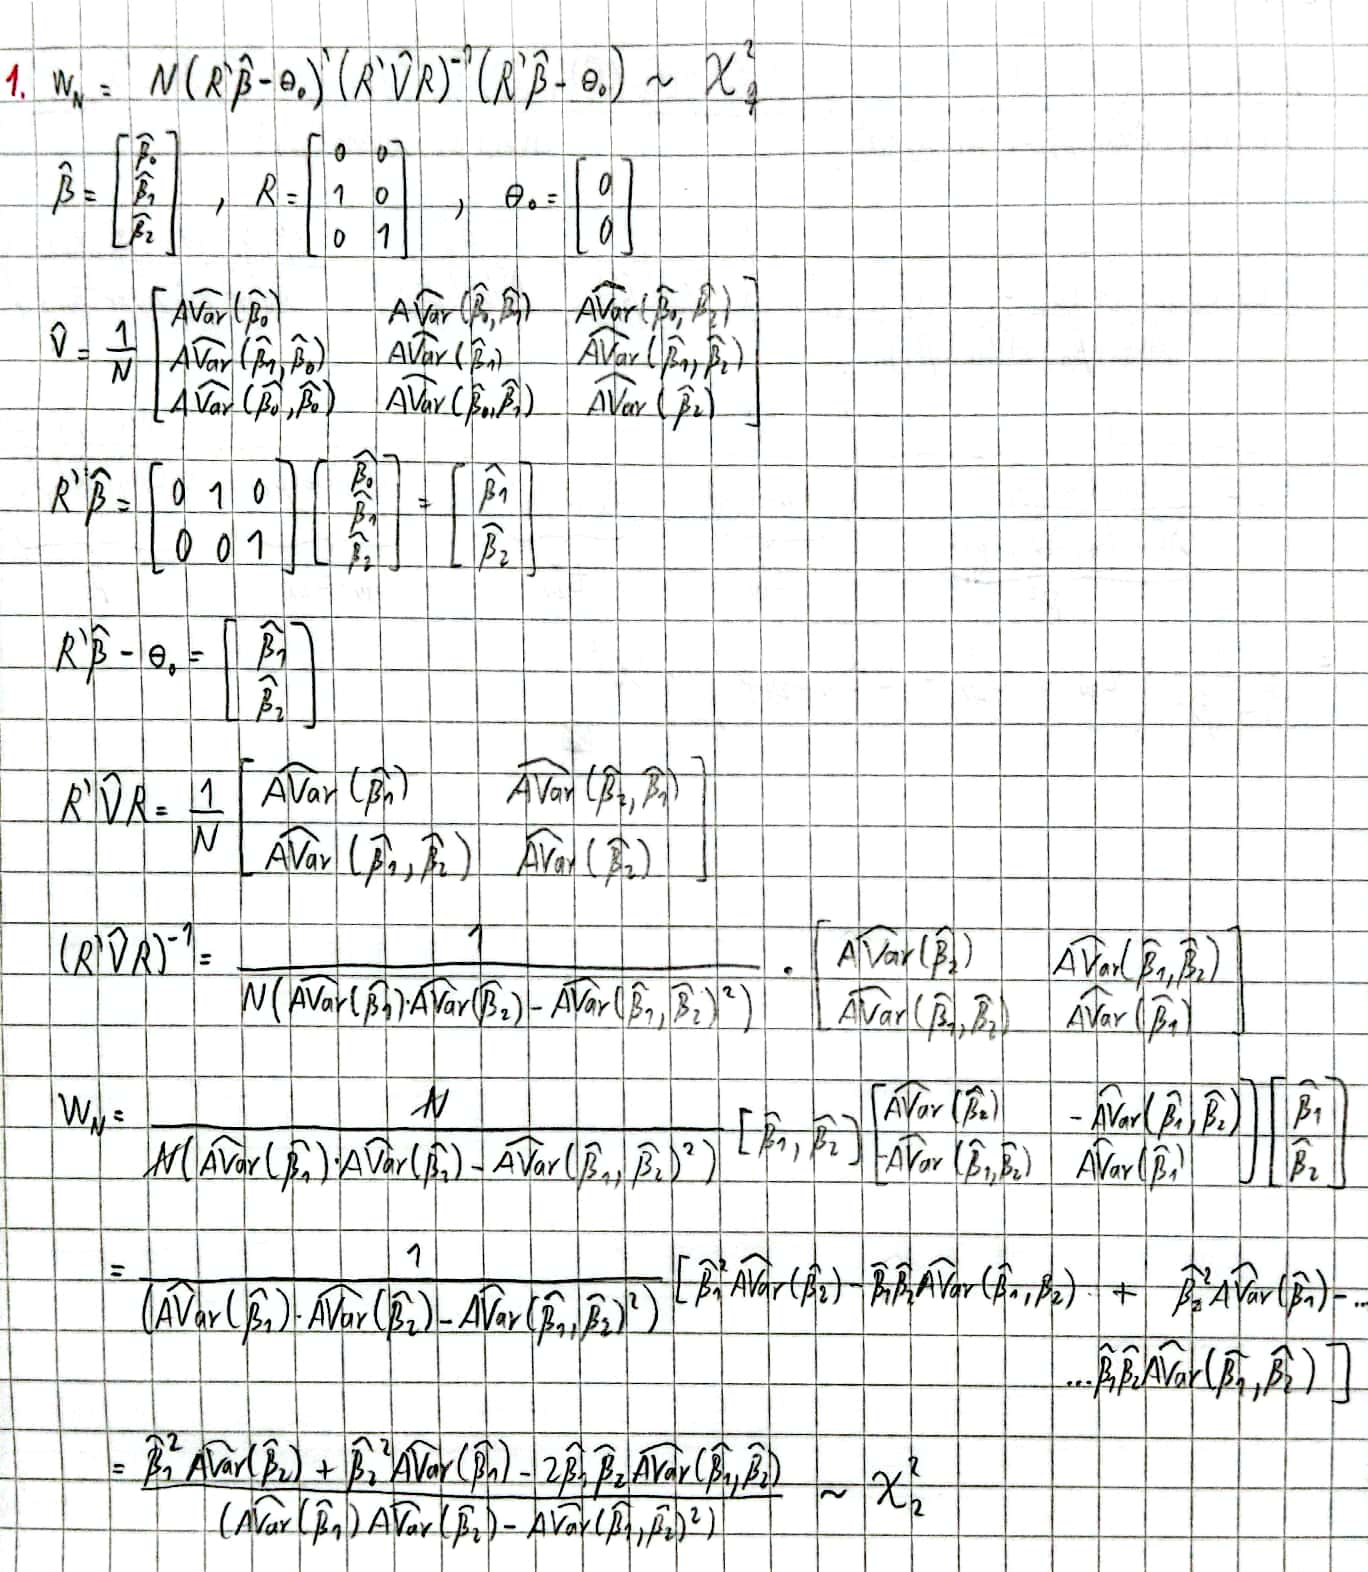 1. W_N = N(R'β̂ - θ₀)'(R'V̂R)⁻¹(R'β̂ - θ₀) ~ χ²_q
β̂ = [β̂₀ β̂₁ β̂₂] , R = [0 0; 1 0; 0 1] , θ₀ = [0; 0]
V̂ = 1/N [AVar̂(β̂₀) AVar̂(β̂₀,β̂₁) AVar̂(β̂₀,β̂₂)
AVar̂(β̂₁,β̂₀) AVar̂(β̂₁) AVar̂(β̂₁,β̂₂)
AVar̂(β̂₀,β̂₀) AVar̂(β̂₀,β̂₁) AVar̂(β̂₂)]
R'β̂ = [0 1 0; 0 0 1] [β̂₀; β̂₁; β̂₂] = [β̂₁; β̂₂]
R'β̂ - θ₀ = [β̂₁; β̂₂]
R'V̂R = 1/N [AVar̂(β̂₁) AVar̂(β̂₂,β̂₁)
AVar̂(β̂₁,β̂₂) AVar̂(β̂₂)]
(R'V̂R)⁻¹ = 1 / N(AVar̂(β̂₁)·AVar̂(β̂₂) - AVar̂(β̂₁,β̂₂)²) · [AVar̂(β̂₂) AVar̂(β̂₁,β̂₂)
AVar̂(β̂₁,β̂₂) AVar̂(β̂₁)]
W_N = N / N(AVar̂(β̂₁)·AVar̂(β̂₂) - AVar̂(β̂₁,β̂₂)²) [β̂₁, β̂₂] [AVar̂(β̂₂) -AVar̂(β̂₁,β̂₂)
-AVar̂(β̂₁,β̂₂) AVar̂(β̂₁)] [β̂₁; β̂₂]
= 1 / (AVar̂(β̂₁)·AVar̂(β̂₂) - AVar̂(β̂₁,β̂₂)²) [β̂₁² AVar̂(β̂₂) - β̂₁β̂₂AVar̂(β̂₁,β₂) + β̂₂² AVar̂(β̂₁) - ...
...β̂₁β̂₂AVar̂(β̂₁,β̂₂)]
= β̂₁² AVar̂(β̂₂) + β̂₂² AVar̂(β̂₁) - 2β̂₁β̂₂AVar̂(β̂₁,β̂₂) / (AVar̂(β̂₁) AVar̂(β̂₂) - AVar̂(β̂₁,β̂₂)²) ~ χ²₂